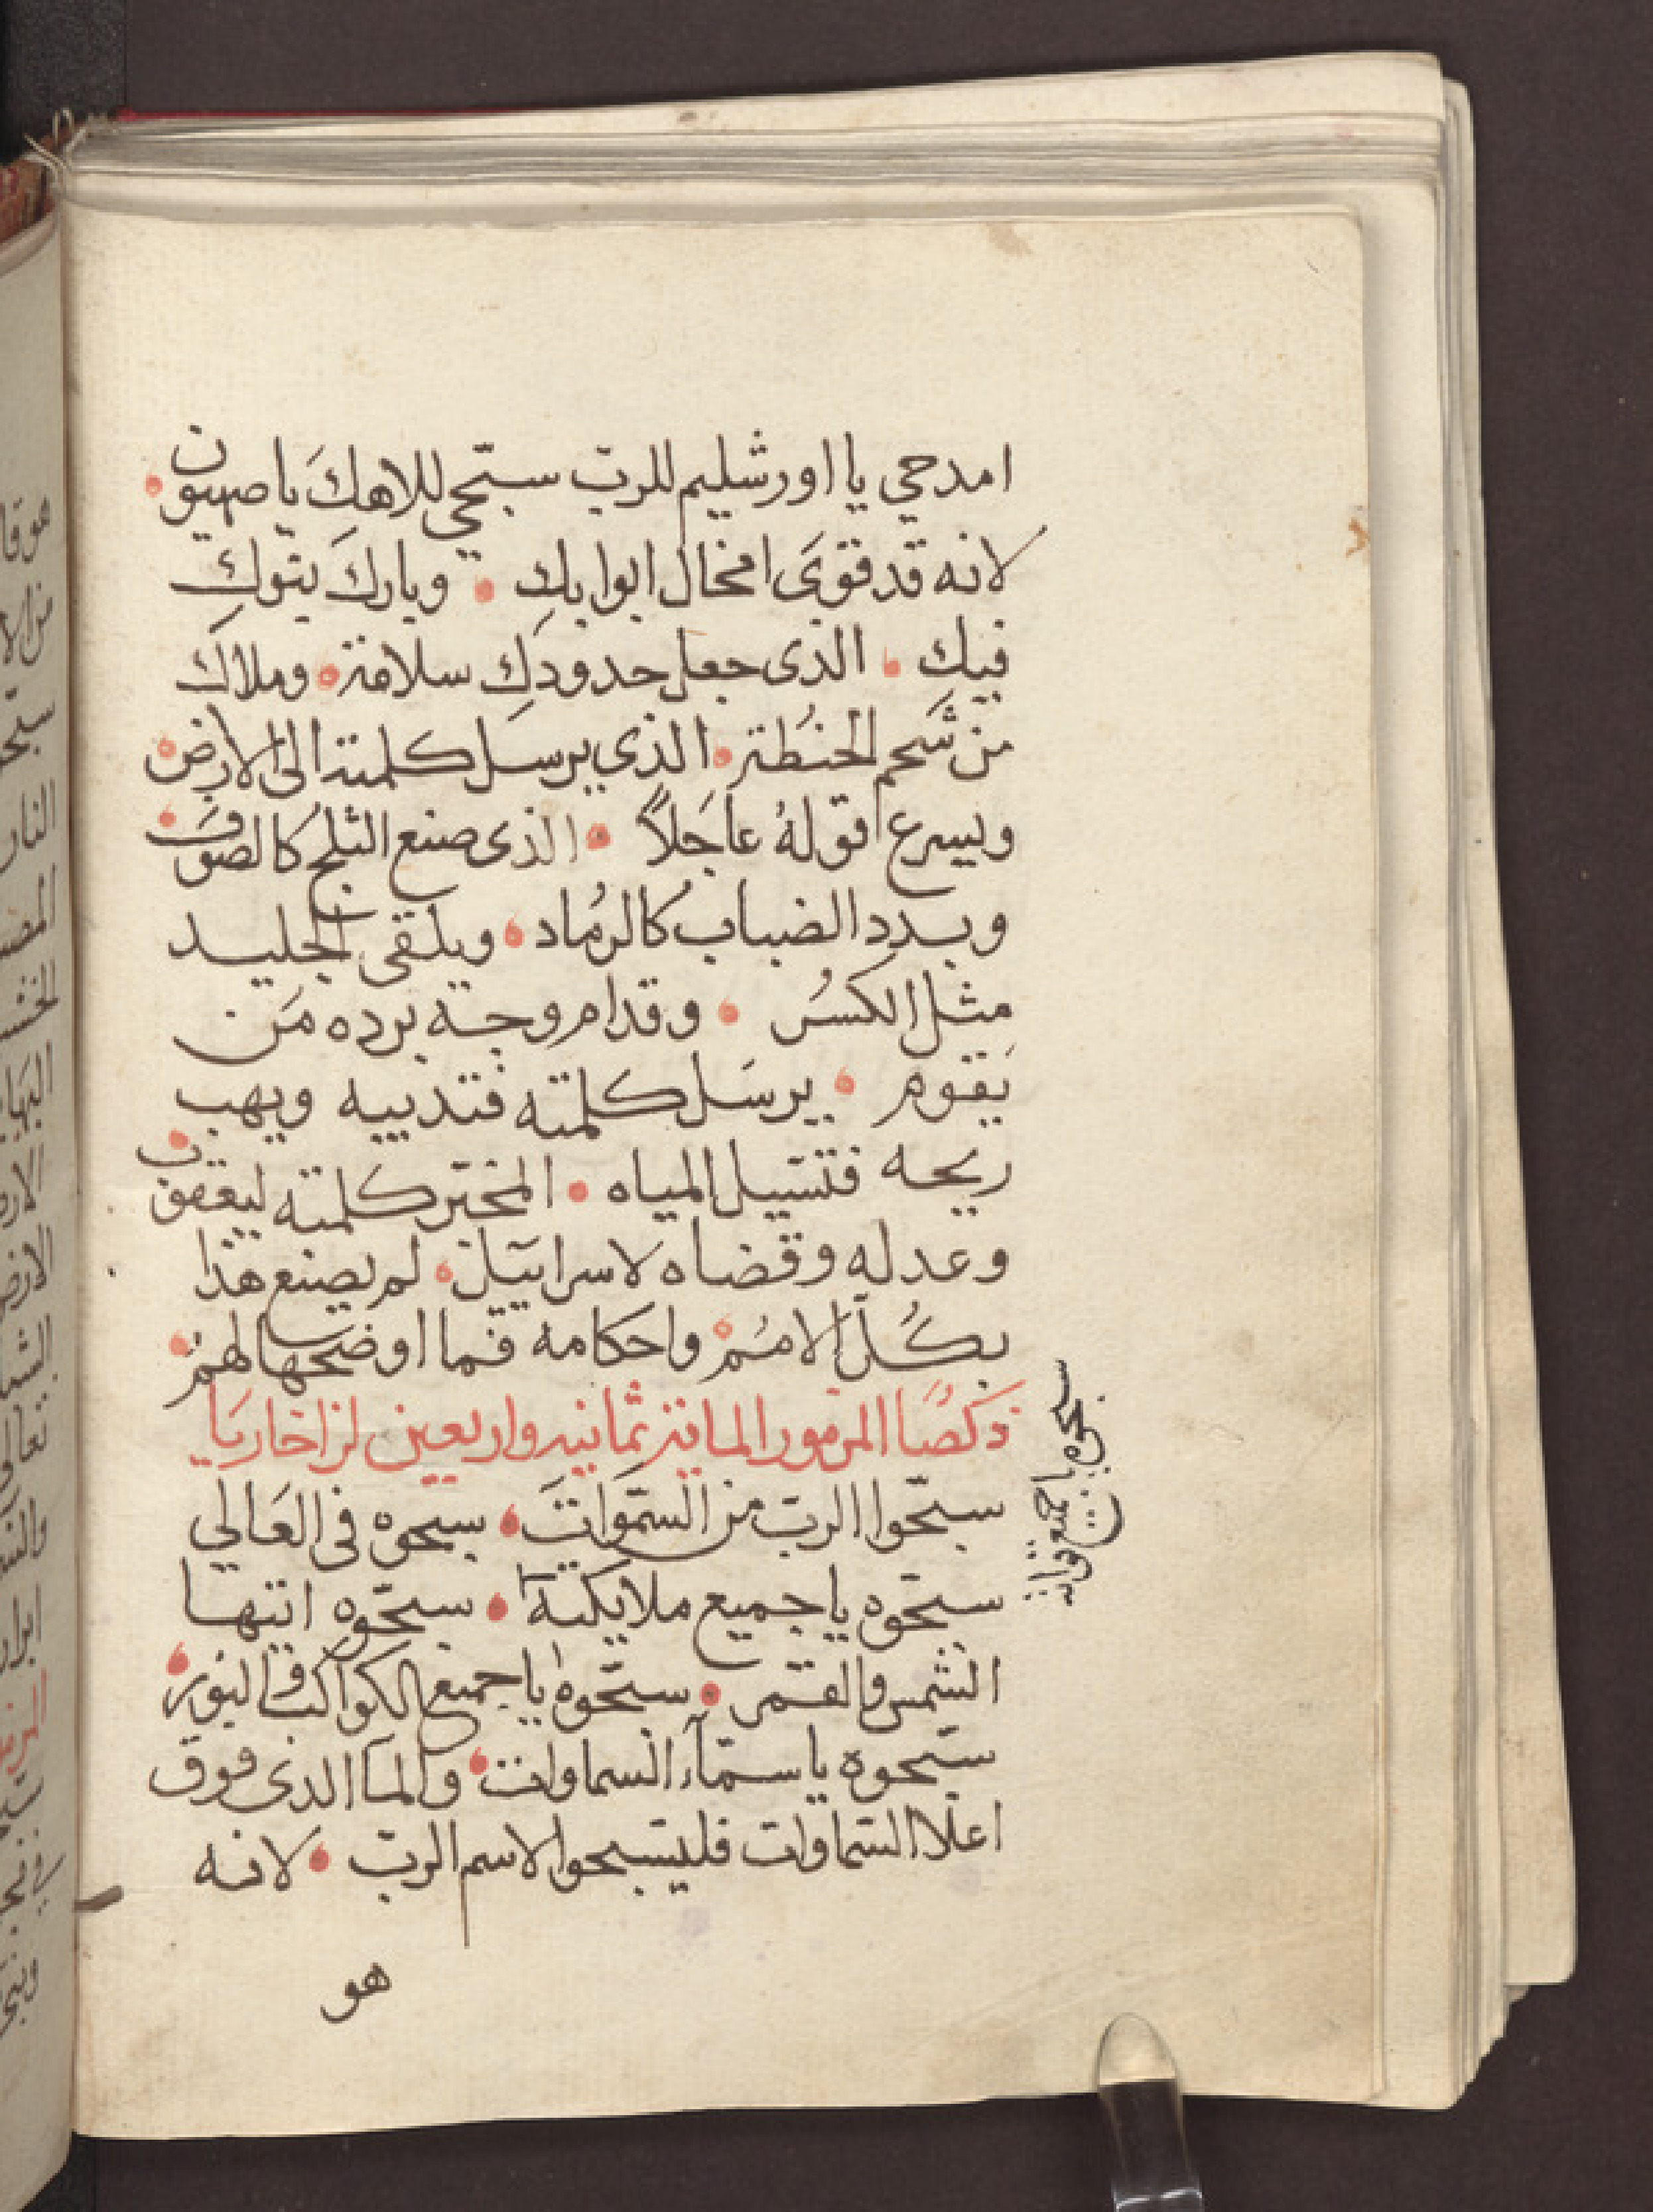 امدحي يا اورشليم للربّ سبّحي للاهكَ يا صهيون
لانه قد قوّى امخال ابوابكِ وبارك بنوكِ
فيك الذى جعل حدودكِ سلامة وملاكَ
من شَحم الحنُطة الذي يرسَل كلمته الى الارض
ويسرع اقولهُ عاجَلاً الذى صنع الثلج كالصوف
وبدد الضباب كالرُماد ويلقى الجليد
مثل الكسُر وقدام وجه برده مَن
يَقوم يرسَل كلمته فتذيبه ويهب
ريحه فتسيل المياه المخبر كلمته ليعقوب
وعدله وقضاه لاسراييل لم يصنع هذا
بكُل الامُم واحكامه فما اوضحها لهمْ
ذكصَا المزمور الماية ثمانيه واربعين لزاخاريَا
سبّحوا الربّ من السَموات سبحوه فى العَالي
سبحّوه يا جميع ملايكته سبحّوه ايتها
الشمس والقمر سبّحوه يا جميع الكواكب والنور
سبّحوه يا سمآء السماوات والما الذى فوق
اعلا السّماوات فليسبحوا لاسم الربّ لانه
هو
سبحوه يا جميع قواته